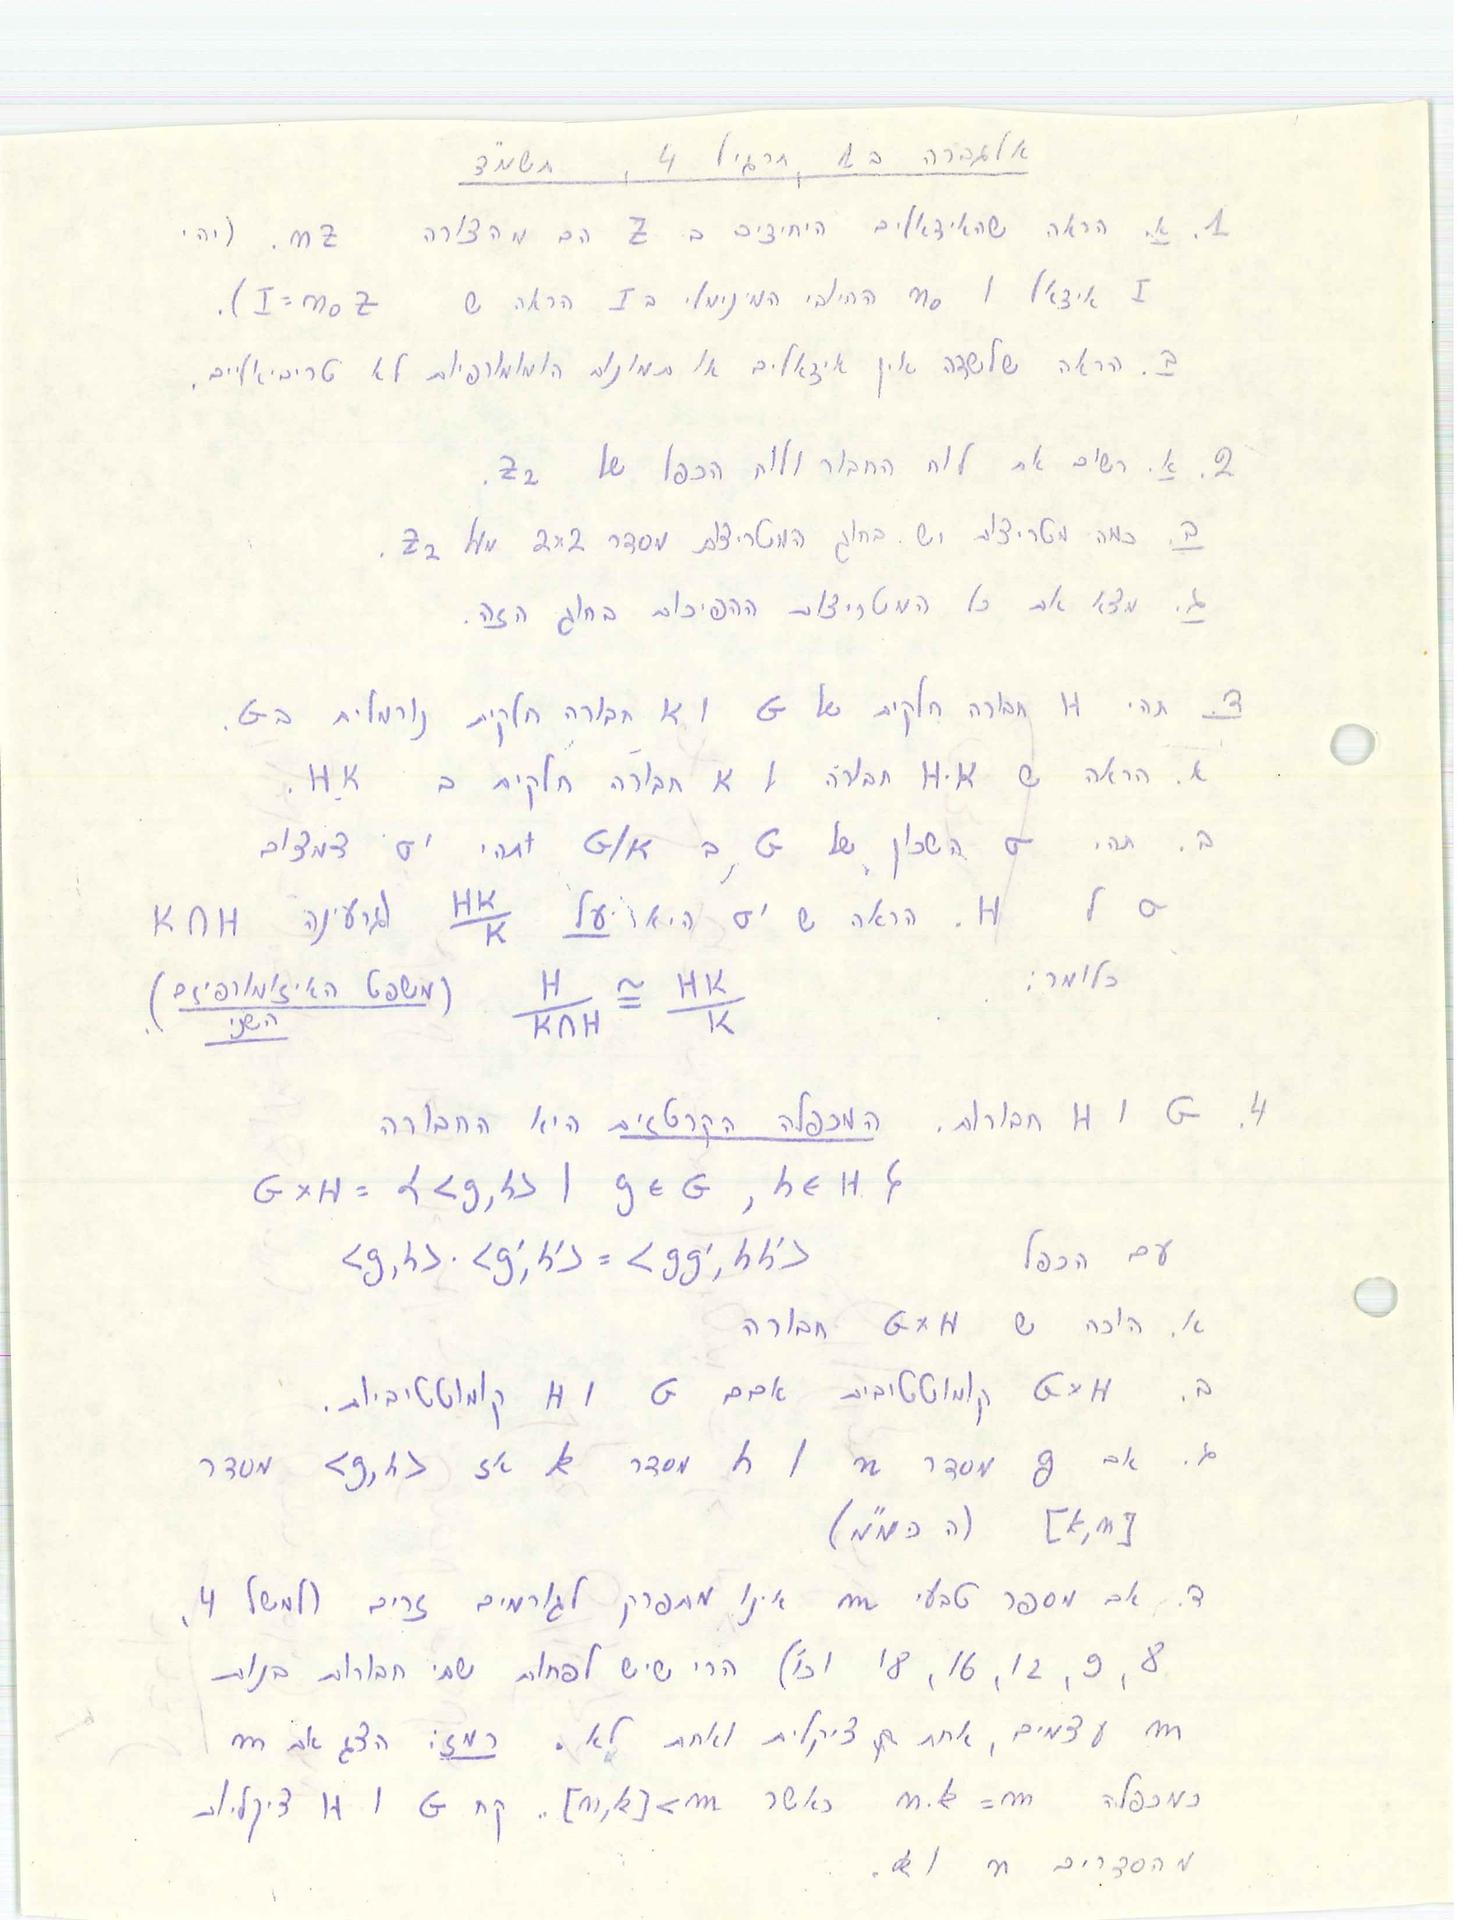 אלגברה ב1, תרגיל 4, תשמ"ד
1. א. הראה שהאידאלים היחידים ב Z הם מהצורה nZ. (יהי
I אידאל ו n₀ החיובי המינימלי ב I הראה ש I=n₀Z).
ב. הראה שלשדה אין אידאלים או תמונות הומומורפיות לא טריביאליים.
2. א. רשום את לוח החבור ולוח הכפל של Z₂.
ב. כמה מטריצות יש בחוג המטריצות מסדר 2×2 מעל Z₂.
ג. מצא את כל המטריצות ההפיכות בחוג הזה.
3. תהי H חבורה חלקית של G ו K חבורה חלקית נורמלית ב G.
א. הראה ש H·K חבורה ו K חבורה חלקית ב HK.
ב. תהי σ השכון של G ב G/K ותהי σ' צמצום
σ ל H. הראה ש σ' היא על HK/K וגרעינה K∩H
כלומר: HK/K ≅ H/K∩H (משפט האיזומורפיזם השני).
4. G ו H חבורות. המכפלה הקרטזית היא החבורה
G×H = {<g,h> | g∈G, h∈H}
עם הכפל <g,h>·<g',h'> = <gg',hh'>
א. הוכח ש G×H חבורה
ב. G×H קומוטטיבית אםם G ו H קומוטטיביות.
ג. אם g מסדר n ו h מסדר k אז <g,h> מסדר
[k,n] (ה כמ"מ)
ד. אם מספר טבעי m אינו מתפרק לגורמים זרים (למשל 4,
8, 9, 12, 16, 18 וכו') הרי שיש לפחות שתי חבורות בנות
m עצמים, אחת ציקלית ואחת לא. רמז: הצג את m
כמכפלה n·k=m כאשר [n,k]<m. קח G ו H ציקליות
מהסדרים n ו k.